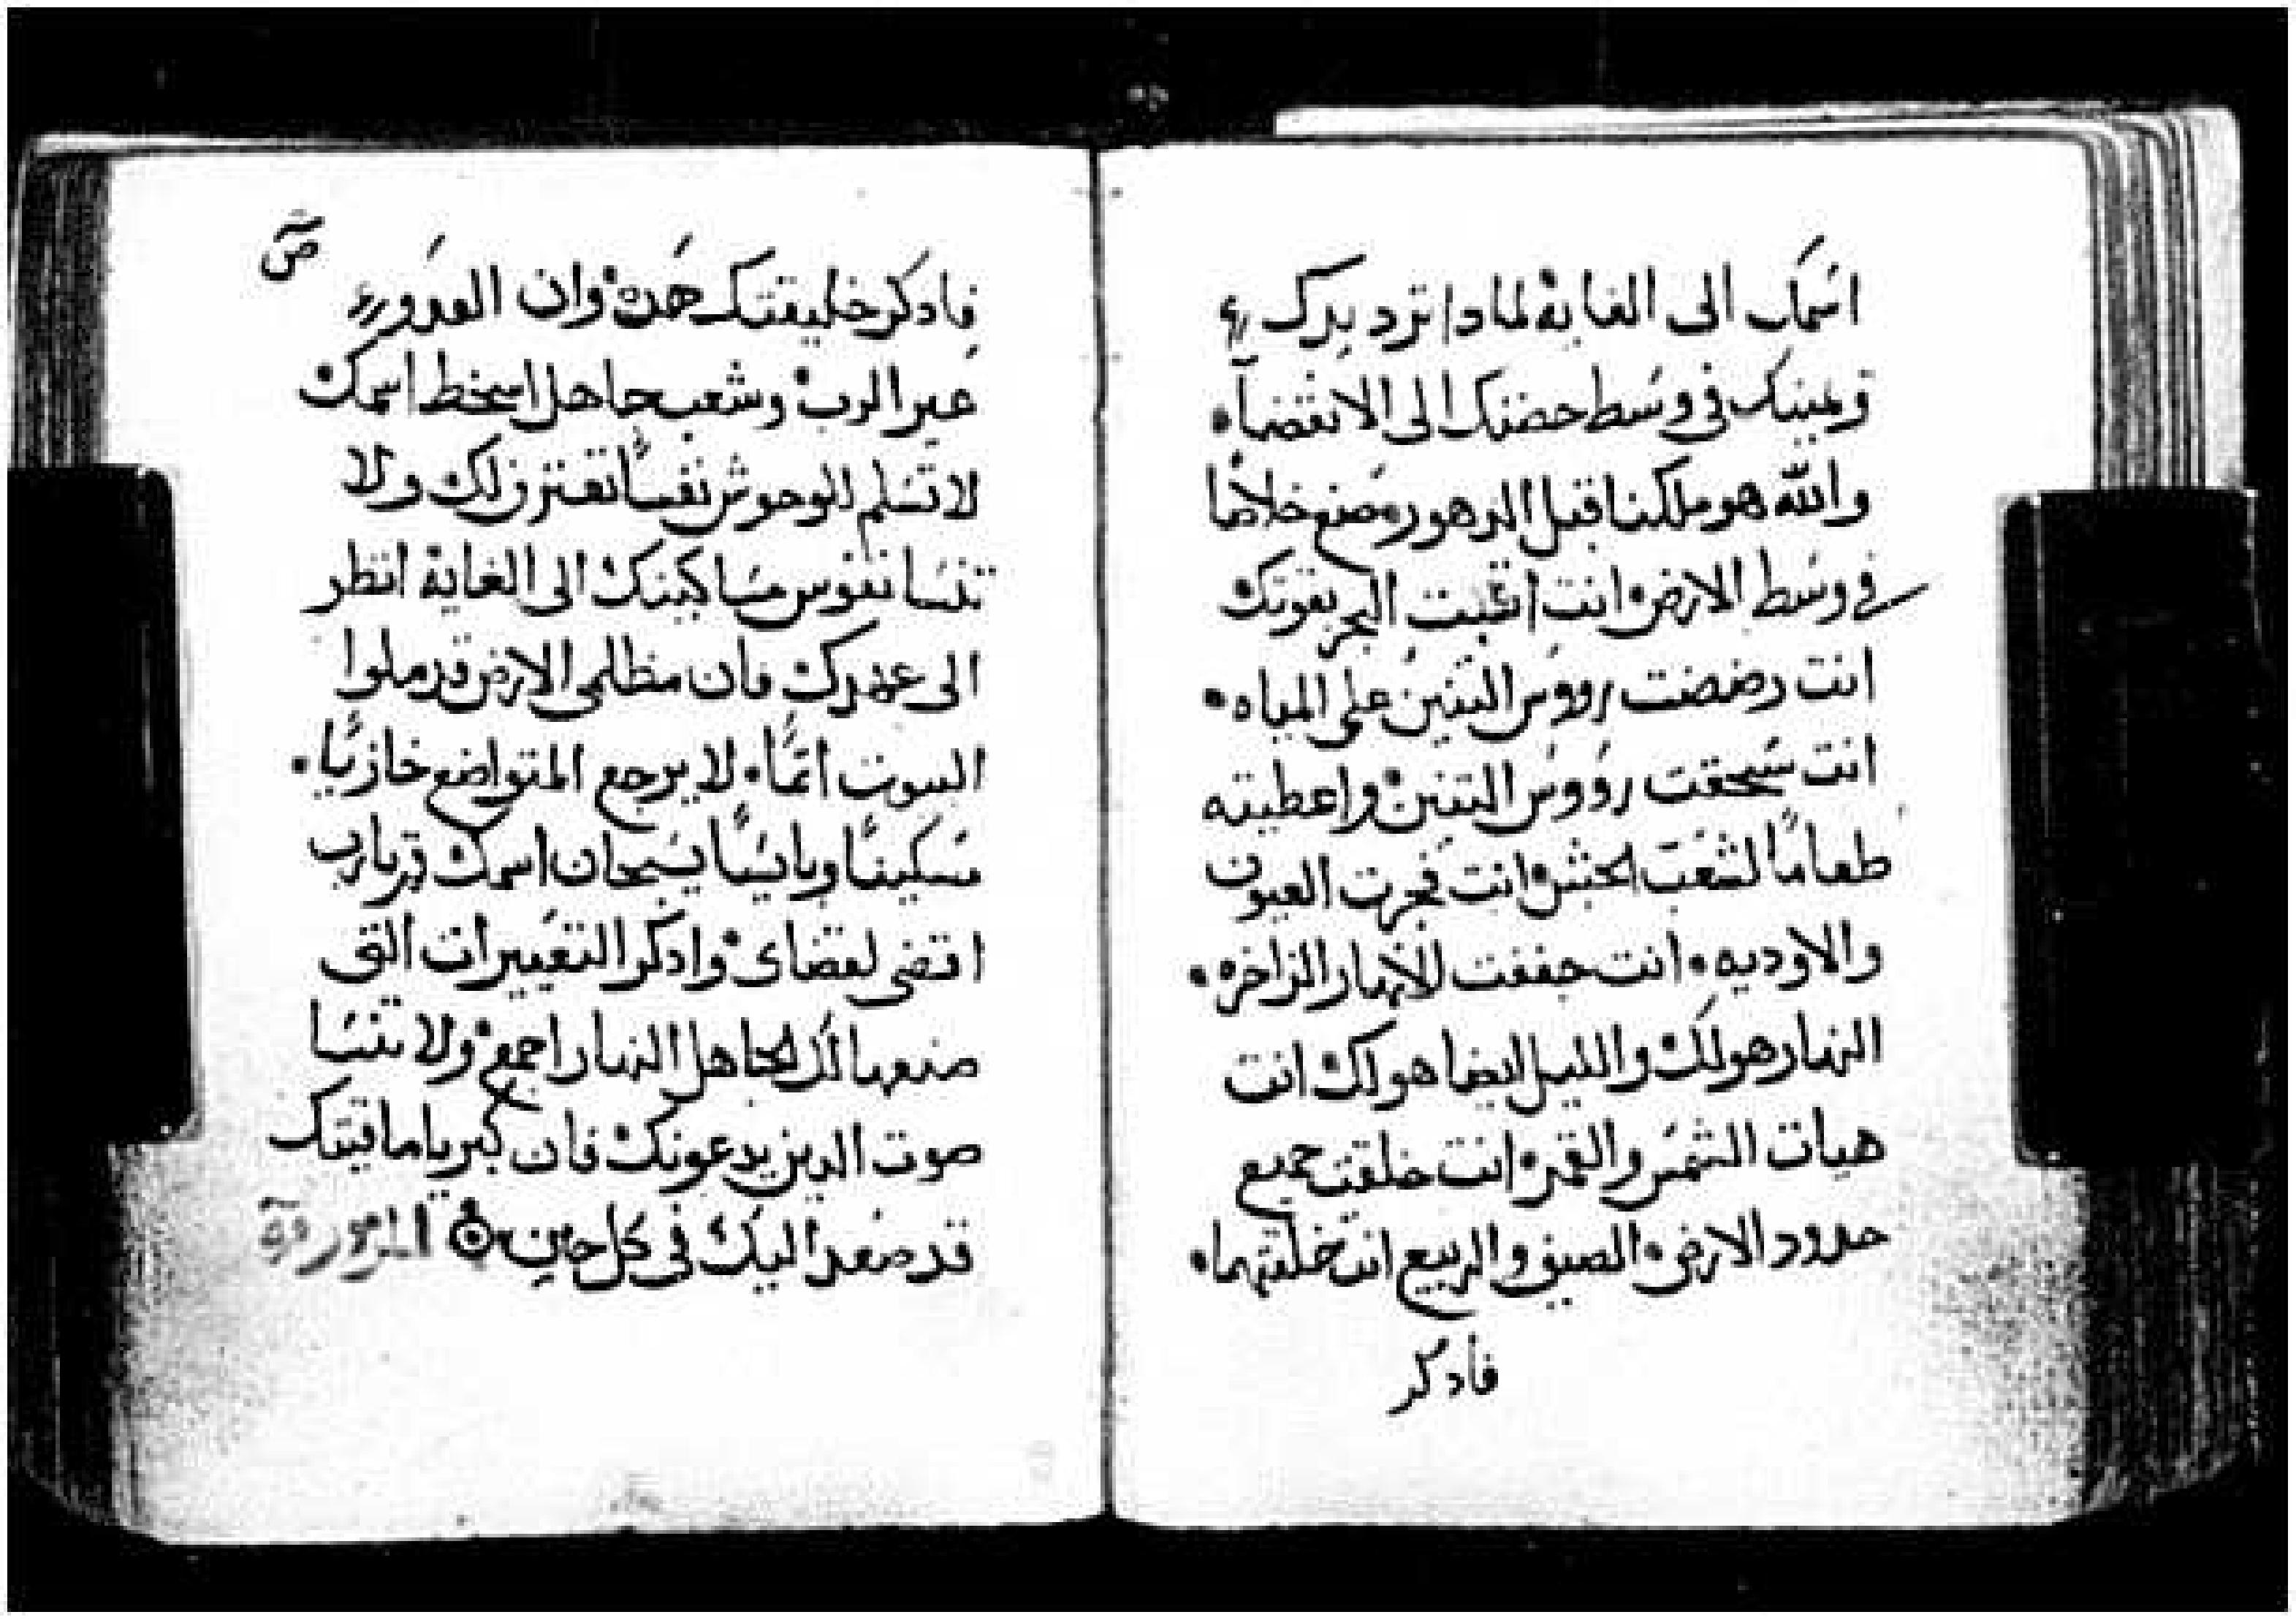 اسمك الى الغاية لماذا ترد يدك
ويمينك في وسط حضنك الى الانقضآ.
والله هو ملكنا قبل الدهور وصنع خلاصًا
في وسط الارض انت اثبت البحر بقوتك
انت رضضت رووس التنين على المياه.
انت سحقت رووس التنين واعطيته
طعامًا لشعب الحبش انت فجرت العيون
والاوديه. انت جففت الانهار الزاخره.
النهار هو لك والليل ايضا هو لك انت
هيات الشمس والقمر انت خلقت جميع
حدود الارض. الصيف والربيع انت خلقتهما.
فادكر
فادكر خليقتك هده وان العدو
عير الرب وشعب جاهل اسخط اسمك
لا تسلم للوحوش نفسًا تعترف لك ولا
تنسا نفوس مساكينك الى الغاية انظر
الى عهدك فان مظلمى الارض قد ملوا
البيوت اثمًا. لا يرجع المتواضع خازيًا.
مسكينًا وبايسًا يسبحان اسمك قم يا رب
اقضى لقضاى واذكر التعييرات التى
صنعها لك الجاهل النهار اجمع ولا تنسا
صوت الدين يدعونك فان كبريا ماقيتك
قد صعد اليك في كل حين المزمور